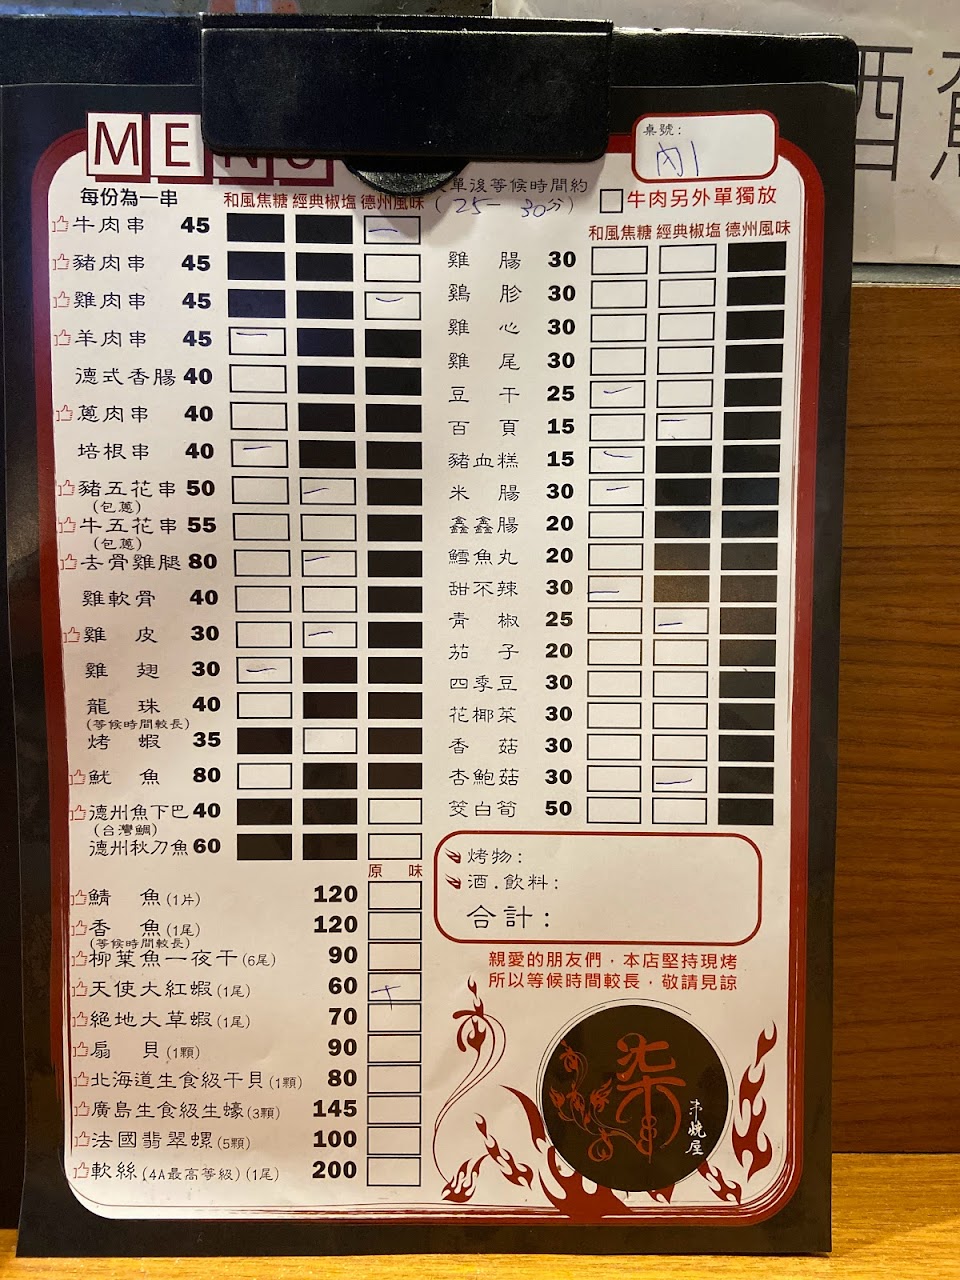 MENU
桌號:
內1
每份為一串
單後等候時間約
(25-30分)
牛肉另外單獨放
和風焦糖 經典椒塩 德州風味
牛肉串 45 一
豬肉串 45
雞肉串 45 一
羊肉串 45 一
德式香腸 40
蔥肉串 40
培根串 40 一
豬五花串 50 一
(包蔥)
牛五花串 55
(包蔥)
去骨雞腿 80 一
雞軟骨 40
雞皮 30 一
雞翅 30 一
龍珠 40
(等候時間較長)
烤蝦 35
魷魚 80
德州魚下巴 40
(台灣鯛)
德州秋刀魚 60
原味
鯖魚(1片) 120
香魚(1尾) 120
(等候時間較長)
柳葉魚一夜干(6尾) 90
天使大紅蝦(1尾) 60 T
絕地大草蝦(1尾) 70
扇貝(1顆) 90
北海道生食級干貝(1顆) 80
廣島生食級生蠔(3顆) 145
法國翡翠螺(5顆) 100
軟絲(4A最高等級)(1尾) 200
和風焦糖 經典椒塩 德州風味
雞腸 30
鷄胗 30
雞心 30
雞尾 30
豆干 25 一
百頁 15 一
豬血糕 15 一
米腸 30 一
鑫鑫腸 20
鱈魚丸 20
甜不辣 30 一
青椒 25 一
茄子 20
四季豆 30
花椰菜 30
香菇 30
杏鮑菇 30 一
筊白筍 50
烤物:
酒.飲料:
合計:
親愛的朋友們,本店堅持現烤
所以等候時間較長,敬請見諒
柒串
串燒屋
酒駕